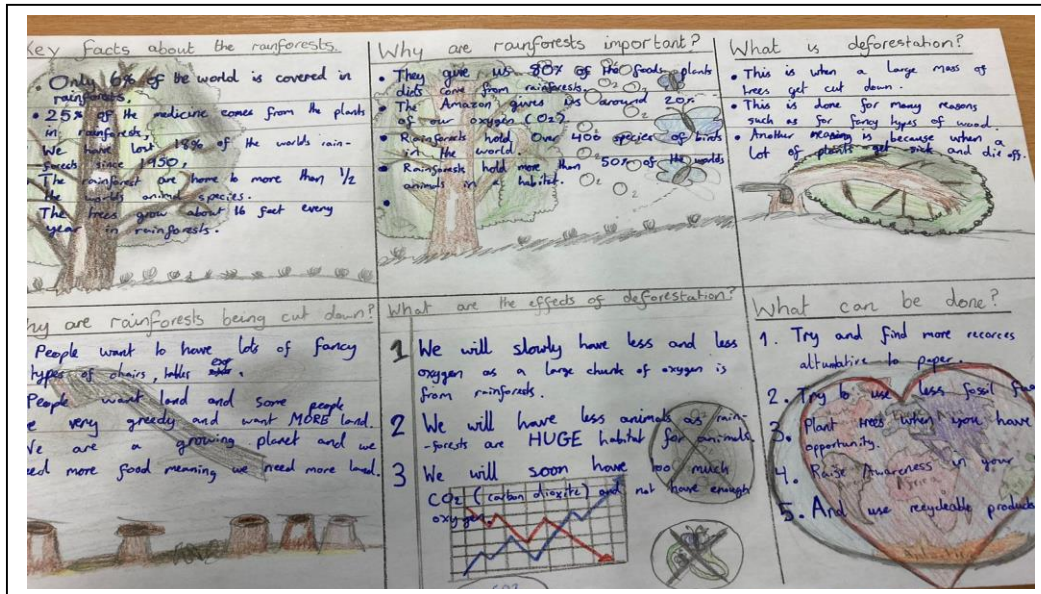 Key facts about the rainforests.
• Only 6% of the world is covered in
rainforests.
• 25% of the medicine comes from the plants
in rainforests,
We have lost 18% of the worlds rain-
forests since 1950,
The rainforest are home to more than 1/2
the worlds animal species.
The trees grow about 16 feet every
year in rainforests.
Why are rainforests important?
• They give us 80% of the foods plants
diets come from rainforests.
• The Amazon gives us around 20%
of our oxygen (CO2).
• Rainforests hold over 400 species of birds
in the world
• Rainforests hold more than 50% of the worlds
animals in a habitat.
•
O2
O2
O2
What is deforestation?
• This is when a large mass of
trees get cut down.
• This is done for many reasons
such as for fancy types of wood.
• Another is because when a
lot of plants get sick and die off.
hy are rainforests being cut down?
People want to have lots of fancy
types of chairs, tables
People want land and some people
e very greedy and want MORE land.
We are a growing planet and we
eed more food meaning we need more land.
What are the effects of deforestation?
1 We will slowly have less and less
oxygen as a large chunk of oxygen is
from rainforests.
2 We will have less animals as rain-
-forests are HUGE habitat for animals.
3 We will soon have too much
CO2 (carbon dioxite) and not have enough
oxygen.
CO2
What can be done?
1. Try and find more recorces
altumative to paper.
2. Try to use less fossil
3. Plant trees when you have
opportunity.
4. Raise Awareness in your
Africa
5. And use recycleable products